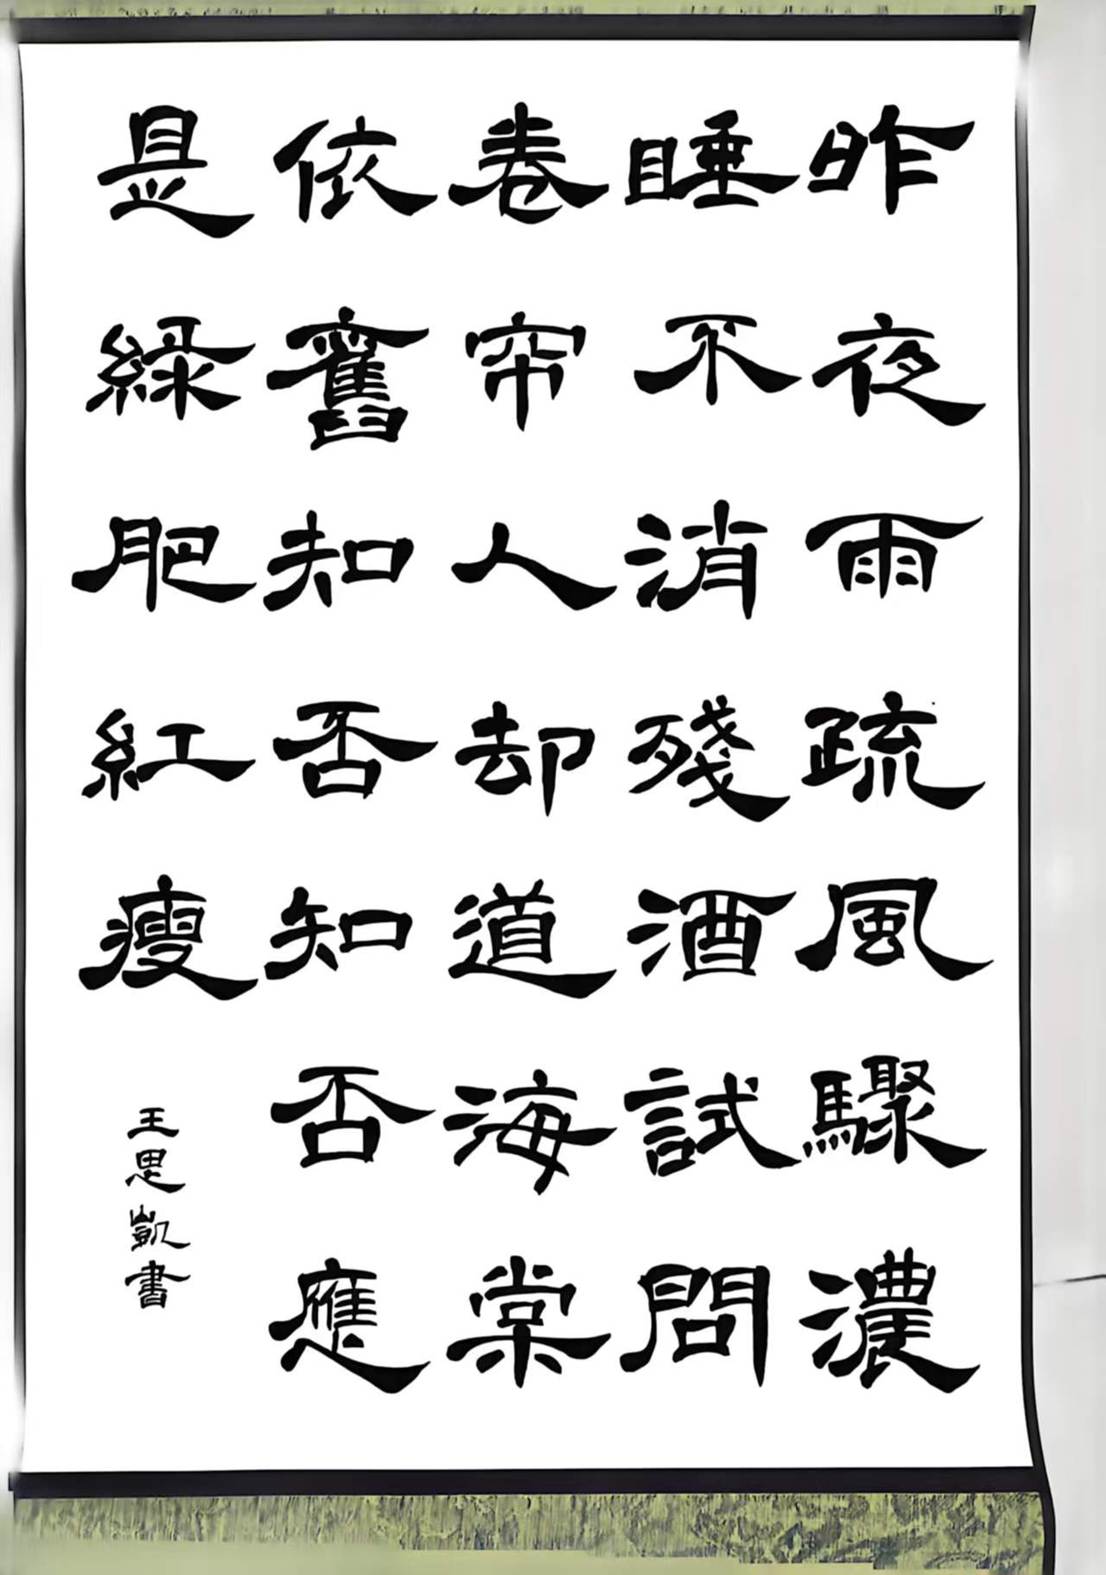 昨夜雨疏風驟濃
睡不消殘酒試問
卷帘人却道海棠
依舊知否知否應
是綠肥紅瘦
王思凱書